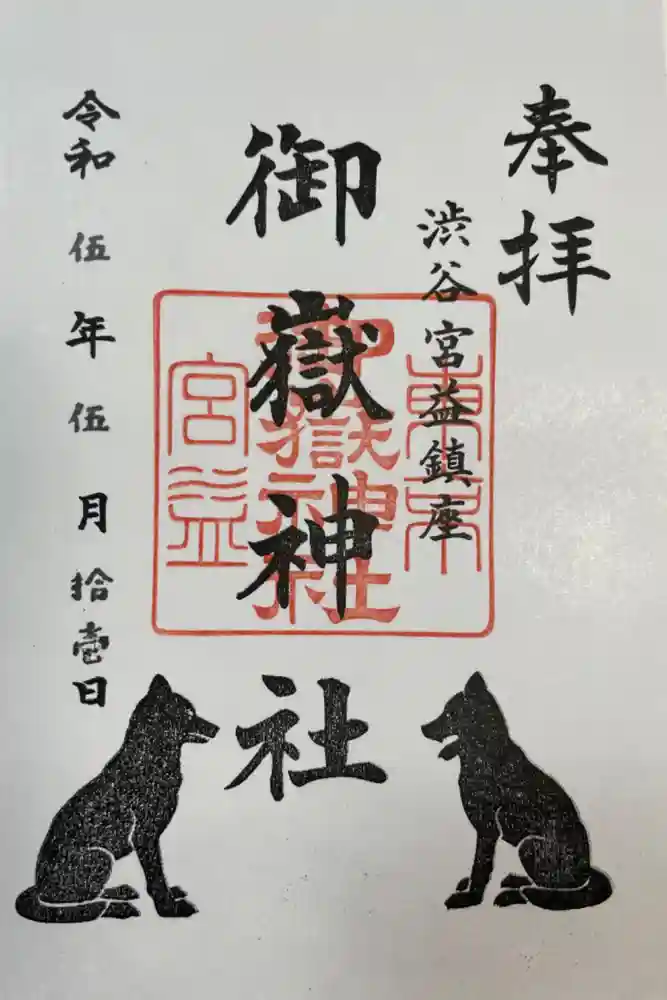 奉拝
渋谷宮益鎮座
東京
御嶽神社
御嶽神社
宮益
令和伍年伍月拾壱日